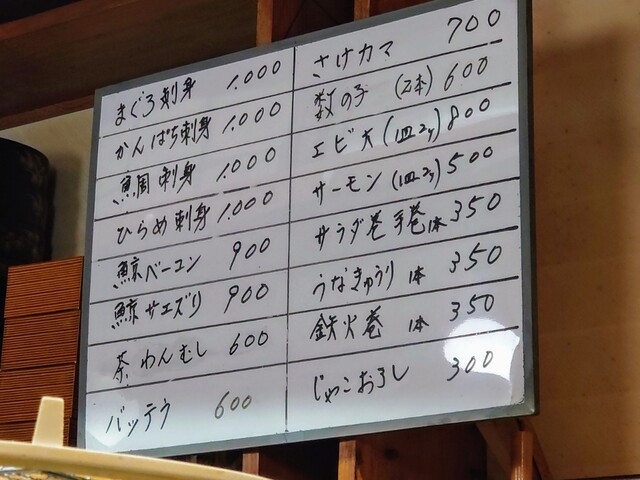 まぐろ刺身 1.000
かんぱち刺身 1.000
鯛刺身 1.000
ひらめ刺身 1.000
鯨ベーコン 900
鯨サエズリ 900
茶わんむし 600
バッテラ 600
さけカマ 700
数の子 (2本) 600
エビ大 (1皿2ケ) 800
サーモン (1皿2ケ) 500
サラダ巻手巻1本 350
うなきゅうり 1本 350
鉄火巻 1本 350
じゃこおろし 300